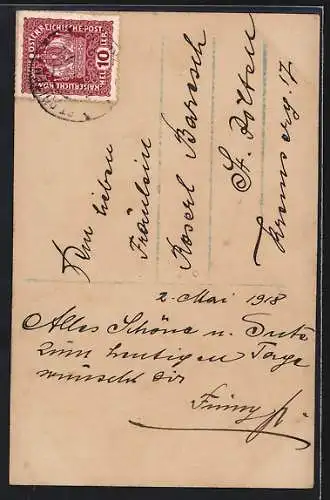 KAISERLICHE KÖNIGLICHE
ÖSTERREICHISCHE POST
10 HELLER 10
Dem lieben
Fräulein
Roserl Baresch
St. Pölten
Kremserg. 17
2. Mai 1918
Alles Schöne u. Gute
zum heutigen Tage
wünscht dir
Finny